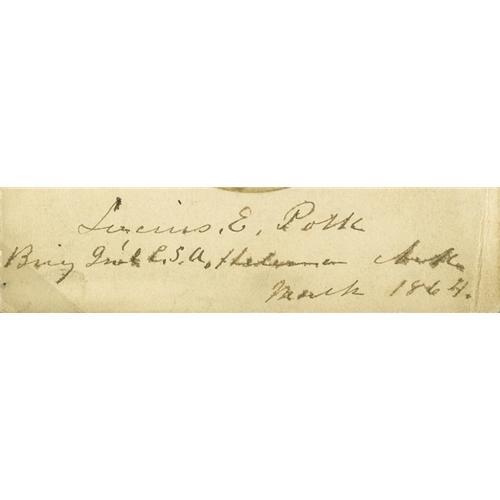 Lucius. E. Polk
Brig Gen'l C.S.A, Helena Ark.
March 1864.